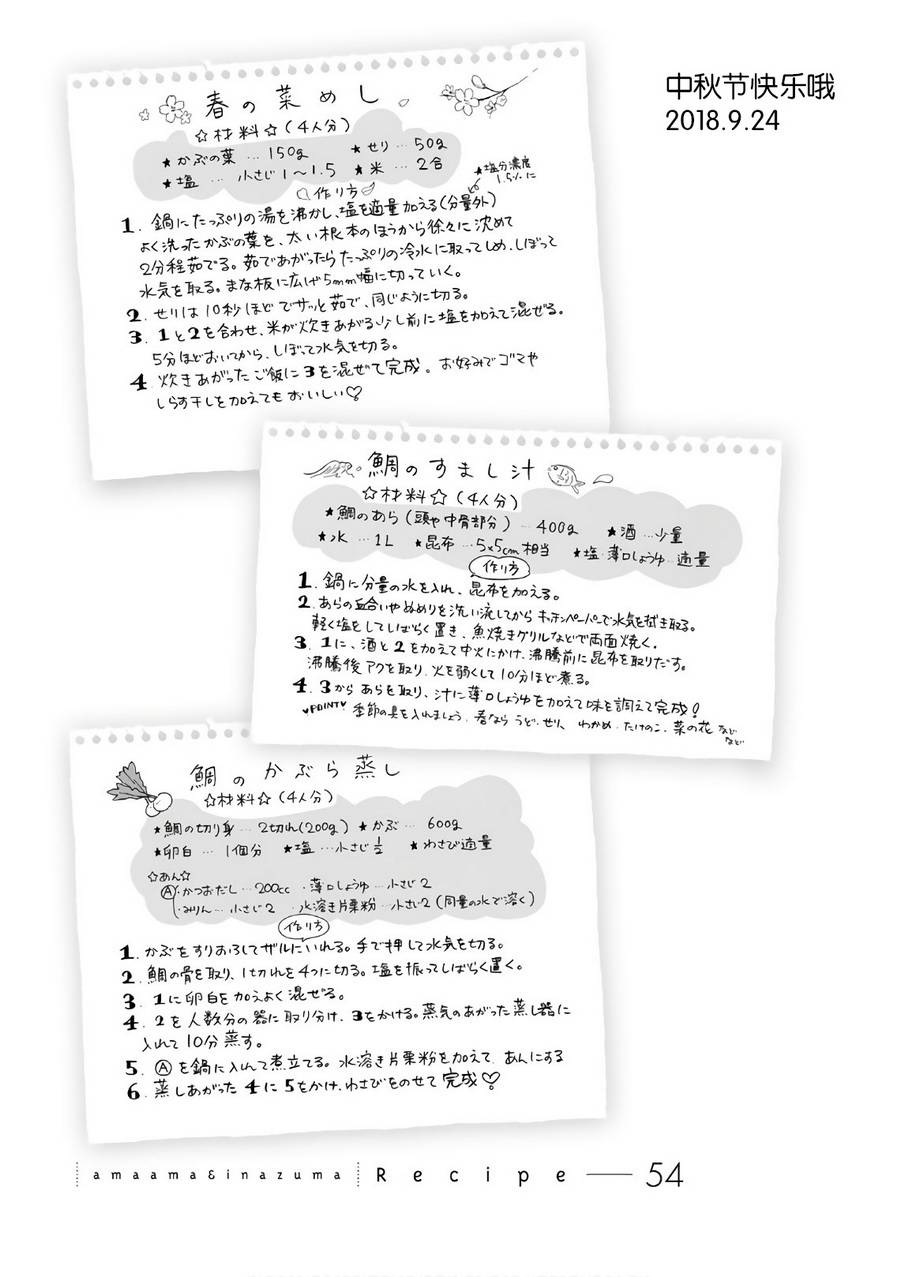 中秋节快乐哦
2018.9.24
春の菜めし
☆材料☆(4人分)
★かぶの葉…150g ★せり…50g
★塩…小さじ1〜1.5 ★米…2合
★塩分濃度
1.5%に
作り方
1. 鍋にたっぷりの湯を沸かし、塩を適量加える(分量外)
よく洗ったかぶの葉を、太い根本のほうから徐々に沈めて
2分程茹でる。茹であがったらたっぷりの冷水に取ってしめ、しぼって
水気を取る。まな板に広げ5mm幅に切っていく。
2. せりは10秒ほどでサッと茹で、同じように切る。
3. 1と2を合わせ、米が炊きあがる少し前に塩を加えて混ぜる。
5分ほどおいてから、しぼって水気を切る。
4 炊きあがったご飯に3を混ぜて完成。お好みでゴマや
しらす干しを加えてもおいしい♡
鯛のすまし汁
☆材料☆(4人分)
★鯛のあら(頭や中骨部分)…400g ★酒…少量
★水…1L ★昆布…5×5cm相当 ★塩・薄口しょうゆ…適量
作り方
1. 鍋に分量の水を入れ、昆布を加える。
2. あらの血合いやぬめりを洗い流してからキッチンペーパーで水気を拭き取る。
軽く塩をしてしばらく置き、魚焼きグリルなどで両面焼く。
3. 1に、酒と2を加えて中火にかけ、沸騰前に昆布を取りだす。
沸騰後アクを取り、火を弱くして10分ほど煮る。
4. 3からあらを取り、汁に薄口しょうゆを加えて味を調えて完成!
♥POINT♥ 季節の具を入れましょう。春なら うど、せり、わかめ・たけのこ、菜の花 など
など
鯛のかぶら蒸し
☆材料☆(4人分)
★鯛の切り身…2切れ(200g) ★かぶ…600g
★卵白…1個分 ★塩…小さじ1/2 ★わさび適量
☆あん☆
Ⓐ・かつおだし…200cc ・薄口しょうゆ…小さじ2
・みりん…小さじ2 ・水溶き片栗粉…小さじ2(同量の水で溶く)
作り方
1. かぶをすりおろしてザルにいれる。手で押して水気を切る。
2. 鯛の骨を取り、1切れを4つに切る。塩を振ってしばらく置く。
3. 1に卵白を加えよく混ぜる。
4. 2を人数分の器に取り分け、3をかける。蒸気のあがった蒸し器に
入れて10分蒸す。
5. Ⓐを鍋に入れて煮立てる。水溶き片栗粉を加えて、あんにする
6. 蒸しあがった4に5をかけ、わさびをのせて完成♡
amaama&inazuma Recipe 54